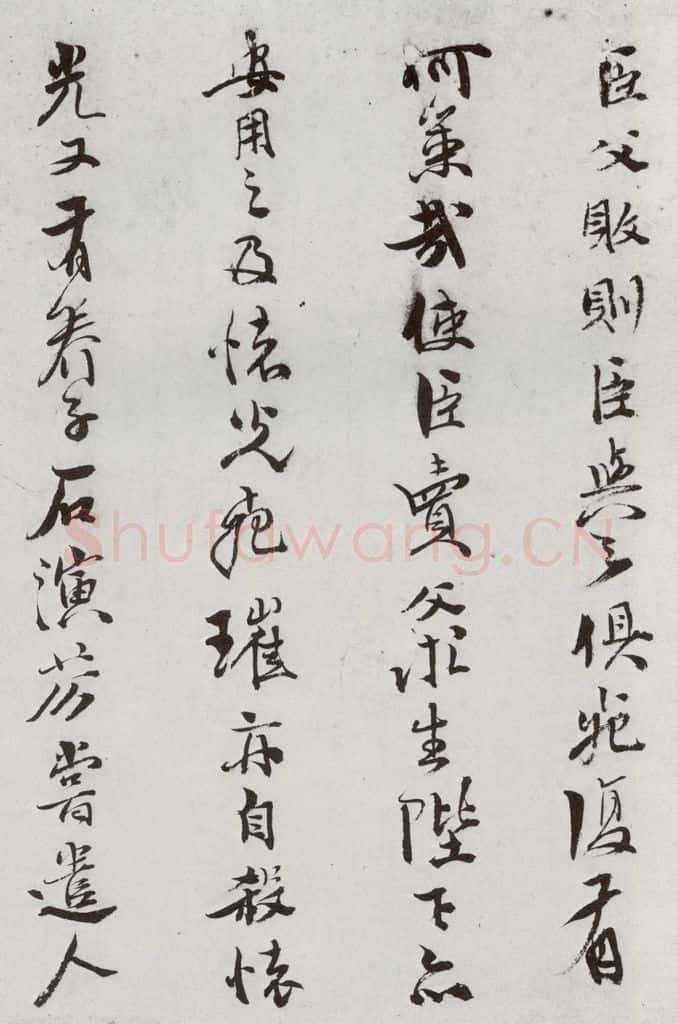 臣父敗則臣與之俱死復有
何策哉使臣賣父求生陛下亦
安用之及懷光死璀亦自殺懷
光又有養子石演芬嘗遣人
Shufawang.CN